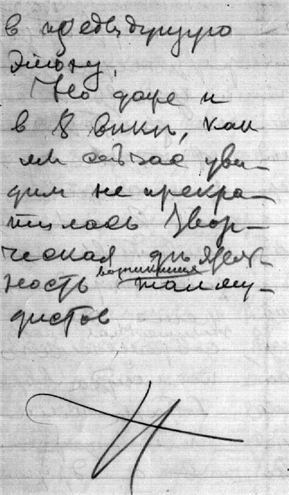 в предыдущую
эпоху.
Но даже и
в 8 веки, как
мы сейчас уви-
дим не прекра-
тилась твор-
ческая деятель-
ность талму-
дистов